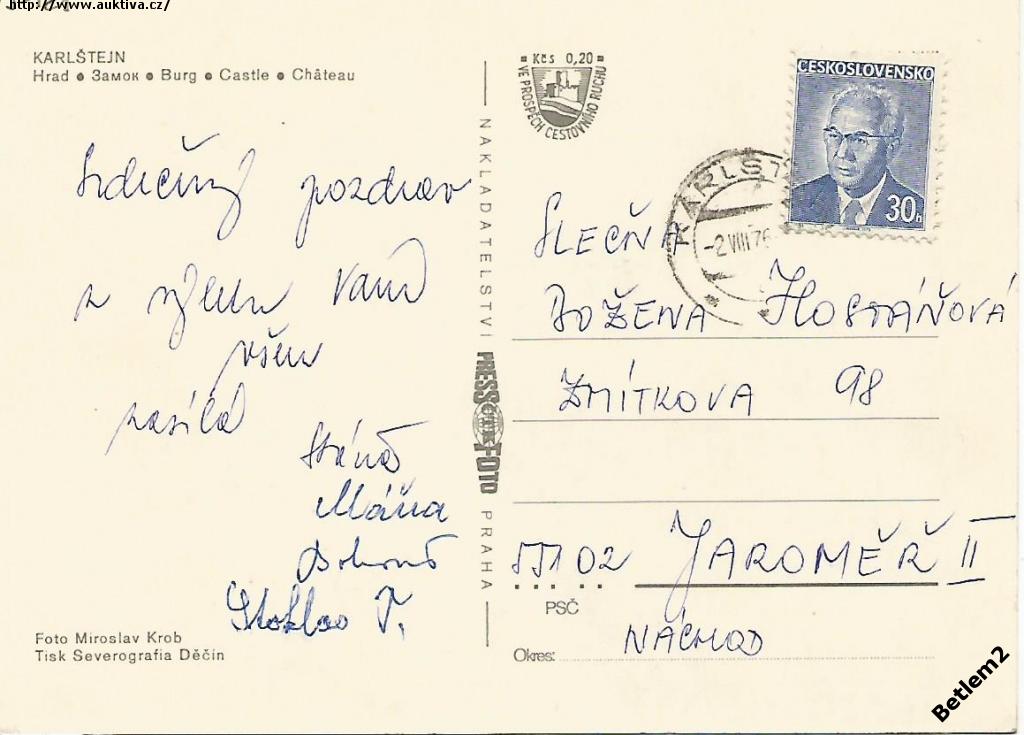 http://www.auktiva.cz/
KARLŠTEJN
Hrad ● Замок ● Burg ● Castle ● Château
Kčs 0,20
VE PROSPĚCH CESTOVNÍHO RUCHU
ČESKOSLOVENSKO
30h
KARLŠT
-2.VIII.76
Srdečný pozdrav
z výletu Vám
všem
zasílá
Stáňa
Máňa
NAKLADATELSTVÍ PRESSFOTO PRAHA
SLEČNA
BOŽENA HOSTÁŇOVÁ
ZMÍTKOVA 98
551 02 JAROMĚŘ II
PSČ
Okres: NÁCHOD
Foto Miroslav Krob
Tisk Severografia Děčín
Betlem2